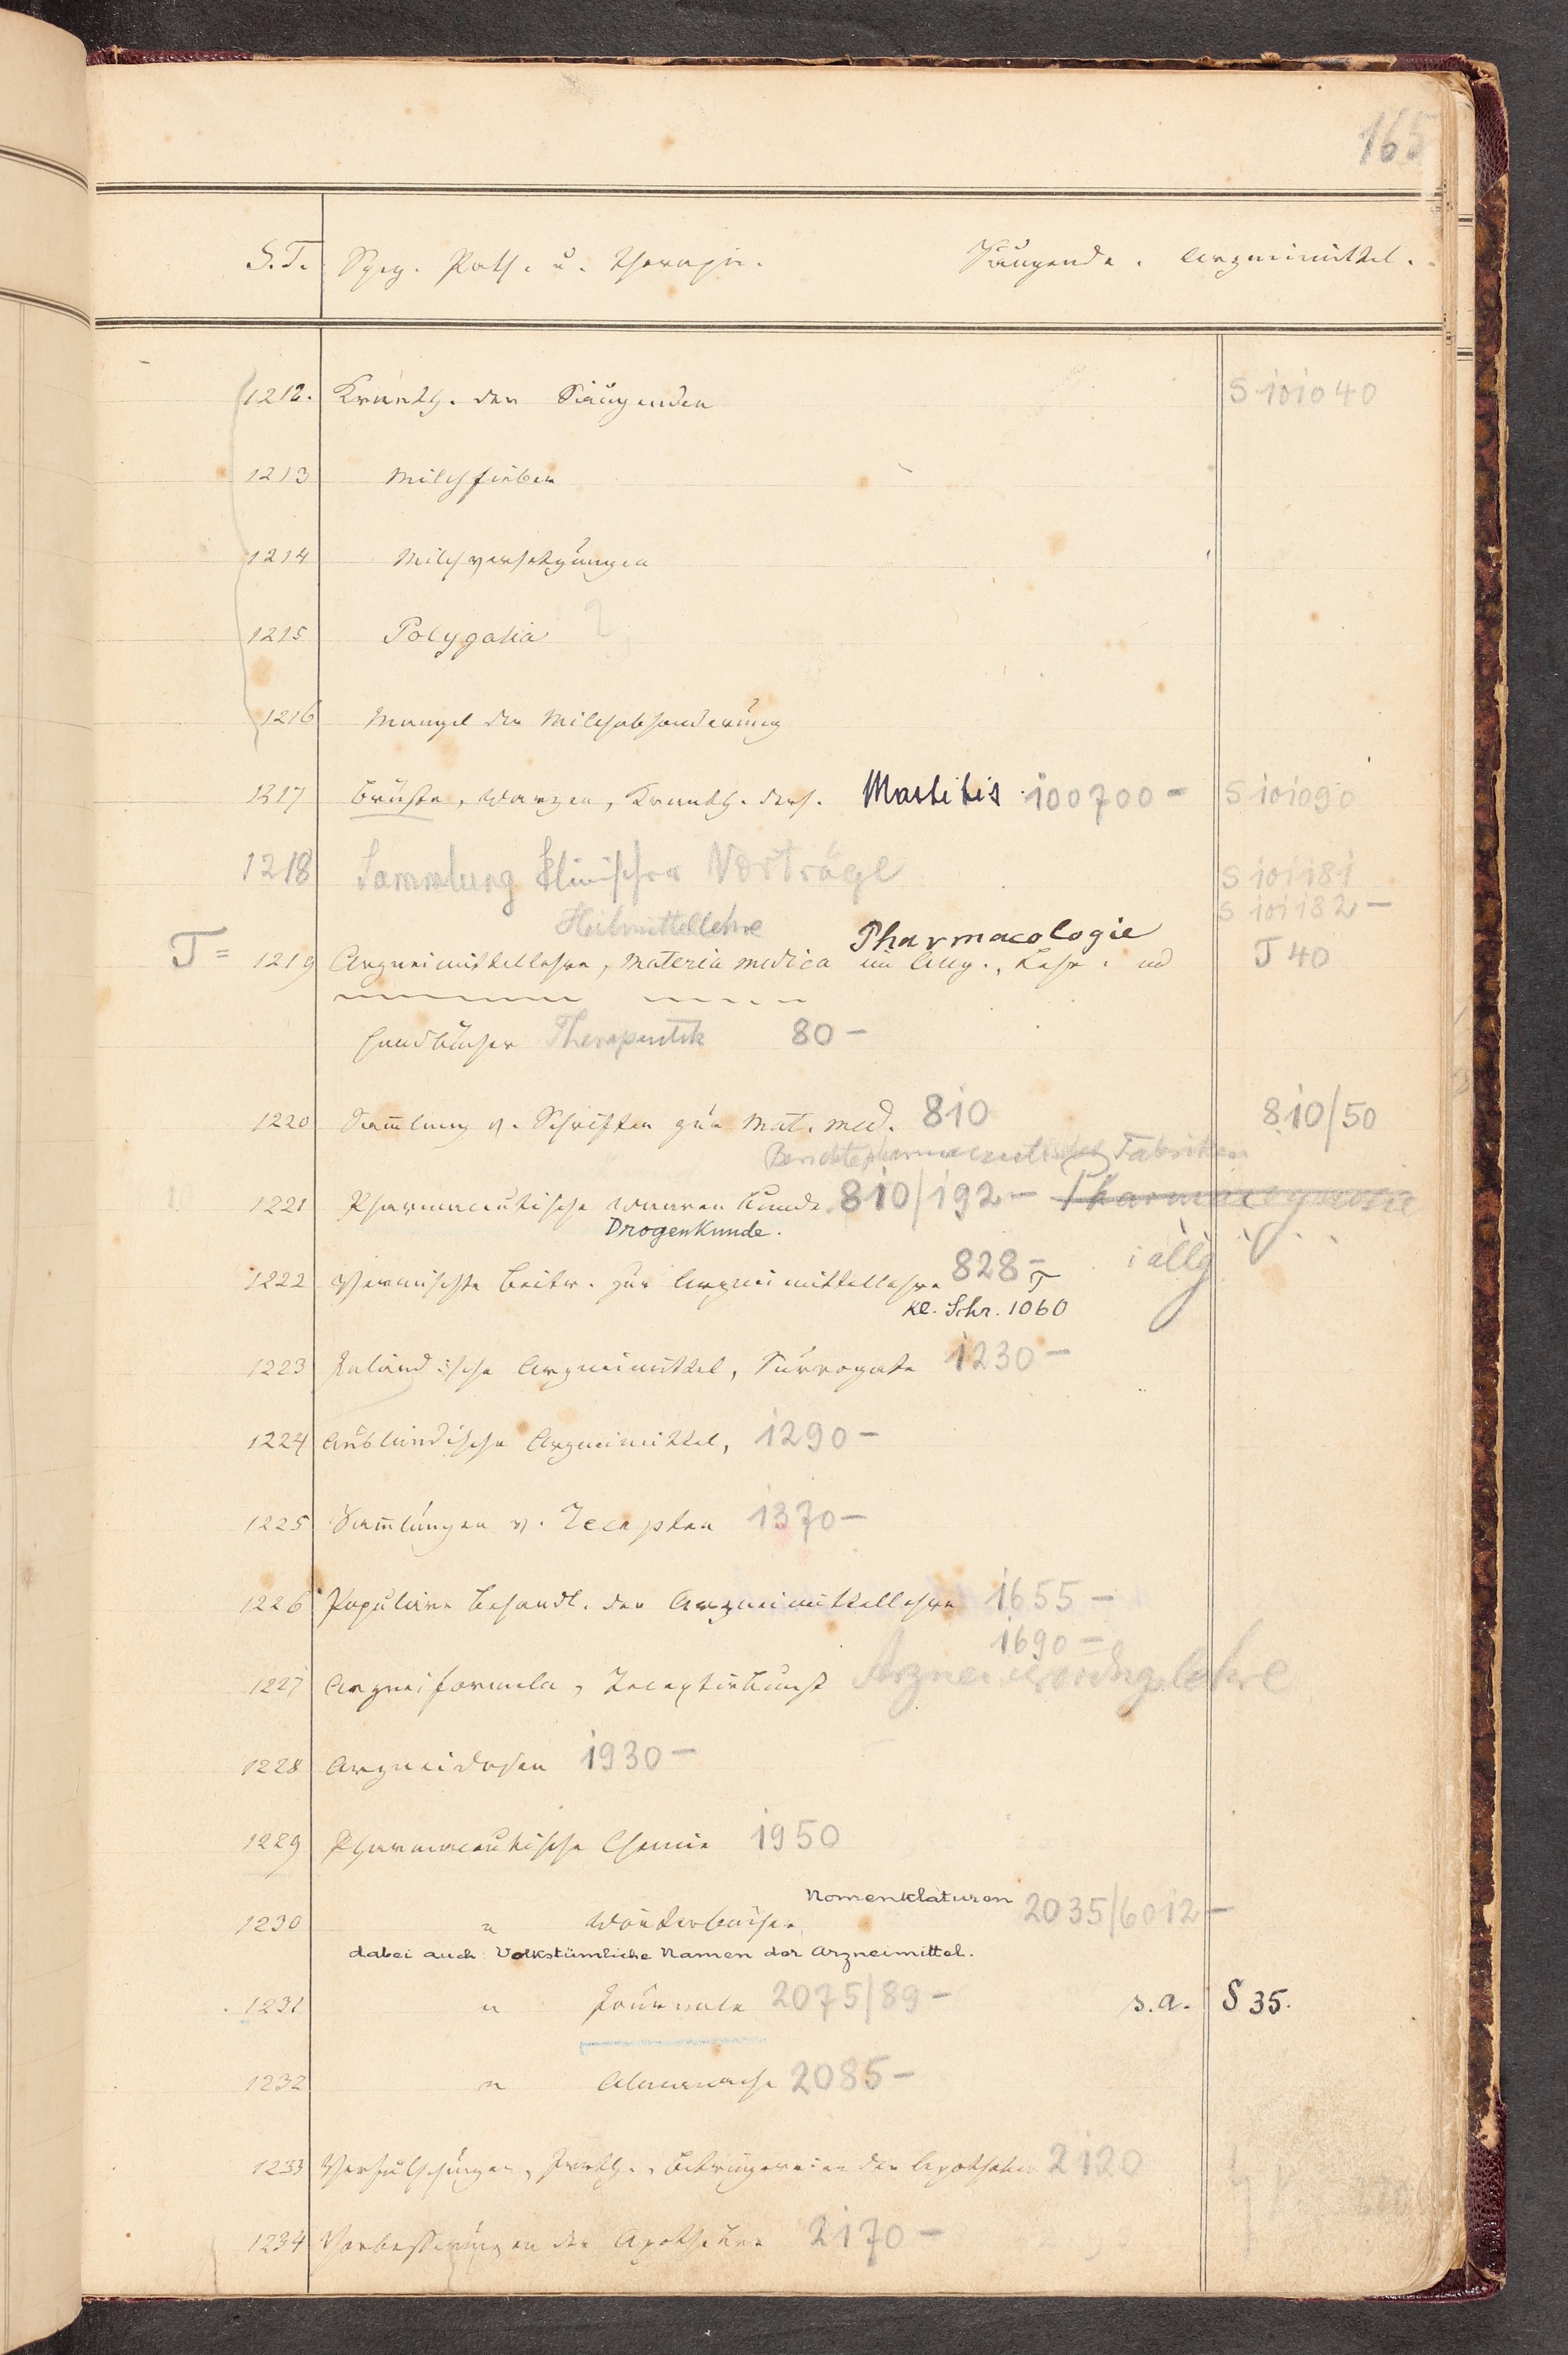 165
S.T. Spez. Path. u. Therapie. Säugende. Arzneimittel.
1212. Krankh. der Säugenden S 101040
1213 Milchfieber
1214 Milchversetzungen
1215 Polygalia ?
1216 Mangel der Milchabsonderung
1317 Brüste, Warzen, Krankh. ders. Mastitis 100700- S 101090
1218 Sammlung klinischer Vorträge S 101181
S 101182-
Heilmittellehre Pharmacologie
T= 1219 Arzneimittellehre, Materia medica im Allg., Lehr- und T 40
Handbücher Therapeutik 80-
1220 Sam̄lung v. Schriften zur Mat. med. 810 810/50
Berichte pharmaceutischer Fabriken
1221 Pharmaceutische Waaren Kunde 810/192- Pharmacognosie
Drogenkunde.
i allg
1222 Vermischte Beitr. zur Arzneimittellehre 828-
Kl. Schr. 1060
1223 Inländische Arzneimittel, Surrogate 1230-
1224 Ausländische Arzneimittel, 1290-
1225 Sam̄lungen v. Recepten 1370-
1226 Populäre Behandl. der Arzneimittellehre 1655-
1690-
1227 Arzneiformeln, Receptirkunst Arzneiverordnungslehre
1228 Arzneidosen 1930-
1229 Pharmaceutische Chemie 1950
Nomenklaturen
1230 " Wörterbücher 2035/6012-
dabei auch: Volkstümliche Namen der Arzneimittel.
1231 " Journale 2075/89- s.a. S 35.
1232 " Almanache 2085-
1233 Verfälschungen, Irrth., Betrügereien der Apotheker 2120
1234 Verbesserungen der Apotheken 2170-